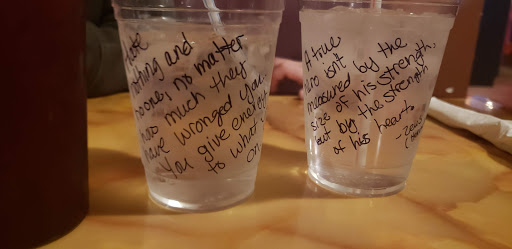 Hate
nothing and
no one, no matter
how much they
have wronged you.
You give energy
to what
on
A true
hero isn't
measured by the
size of his strength,
but by the strength
of his heart.
Zeus